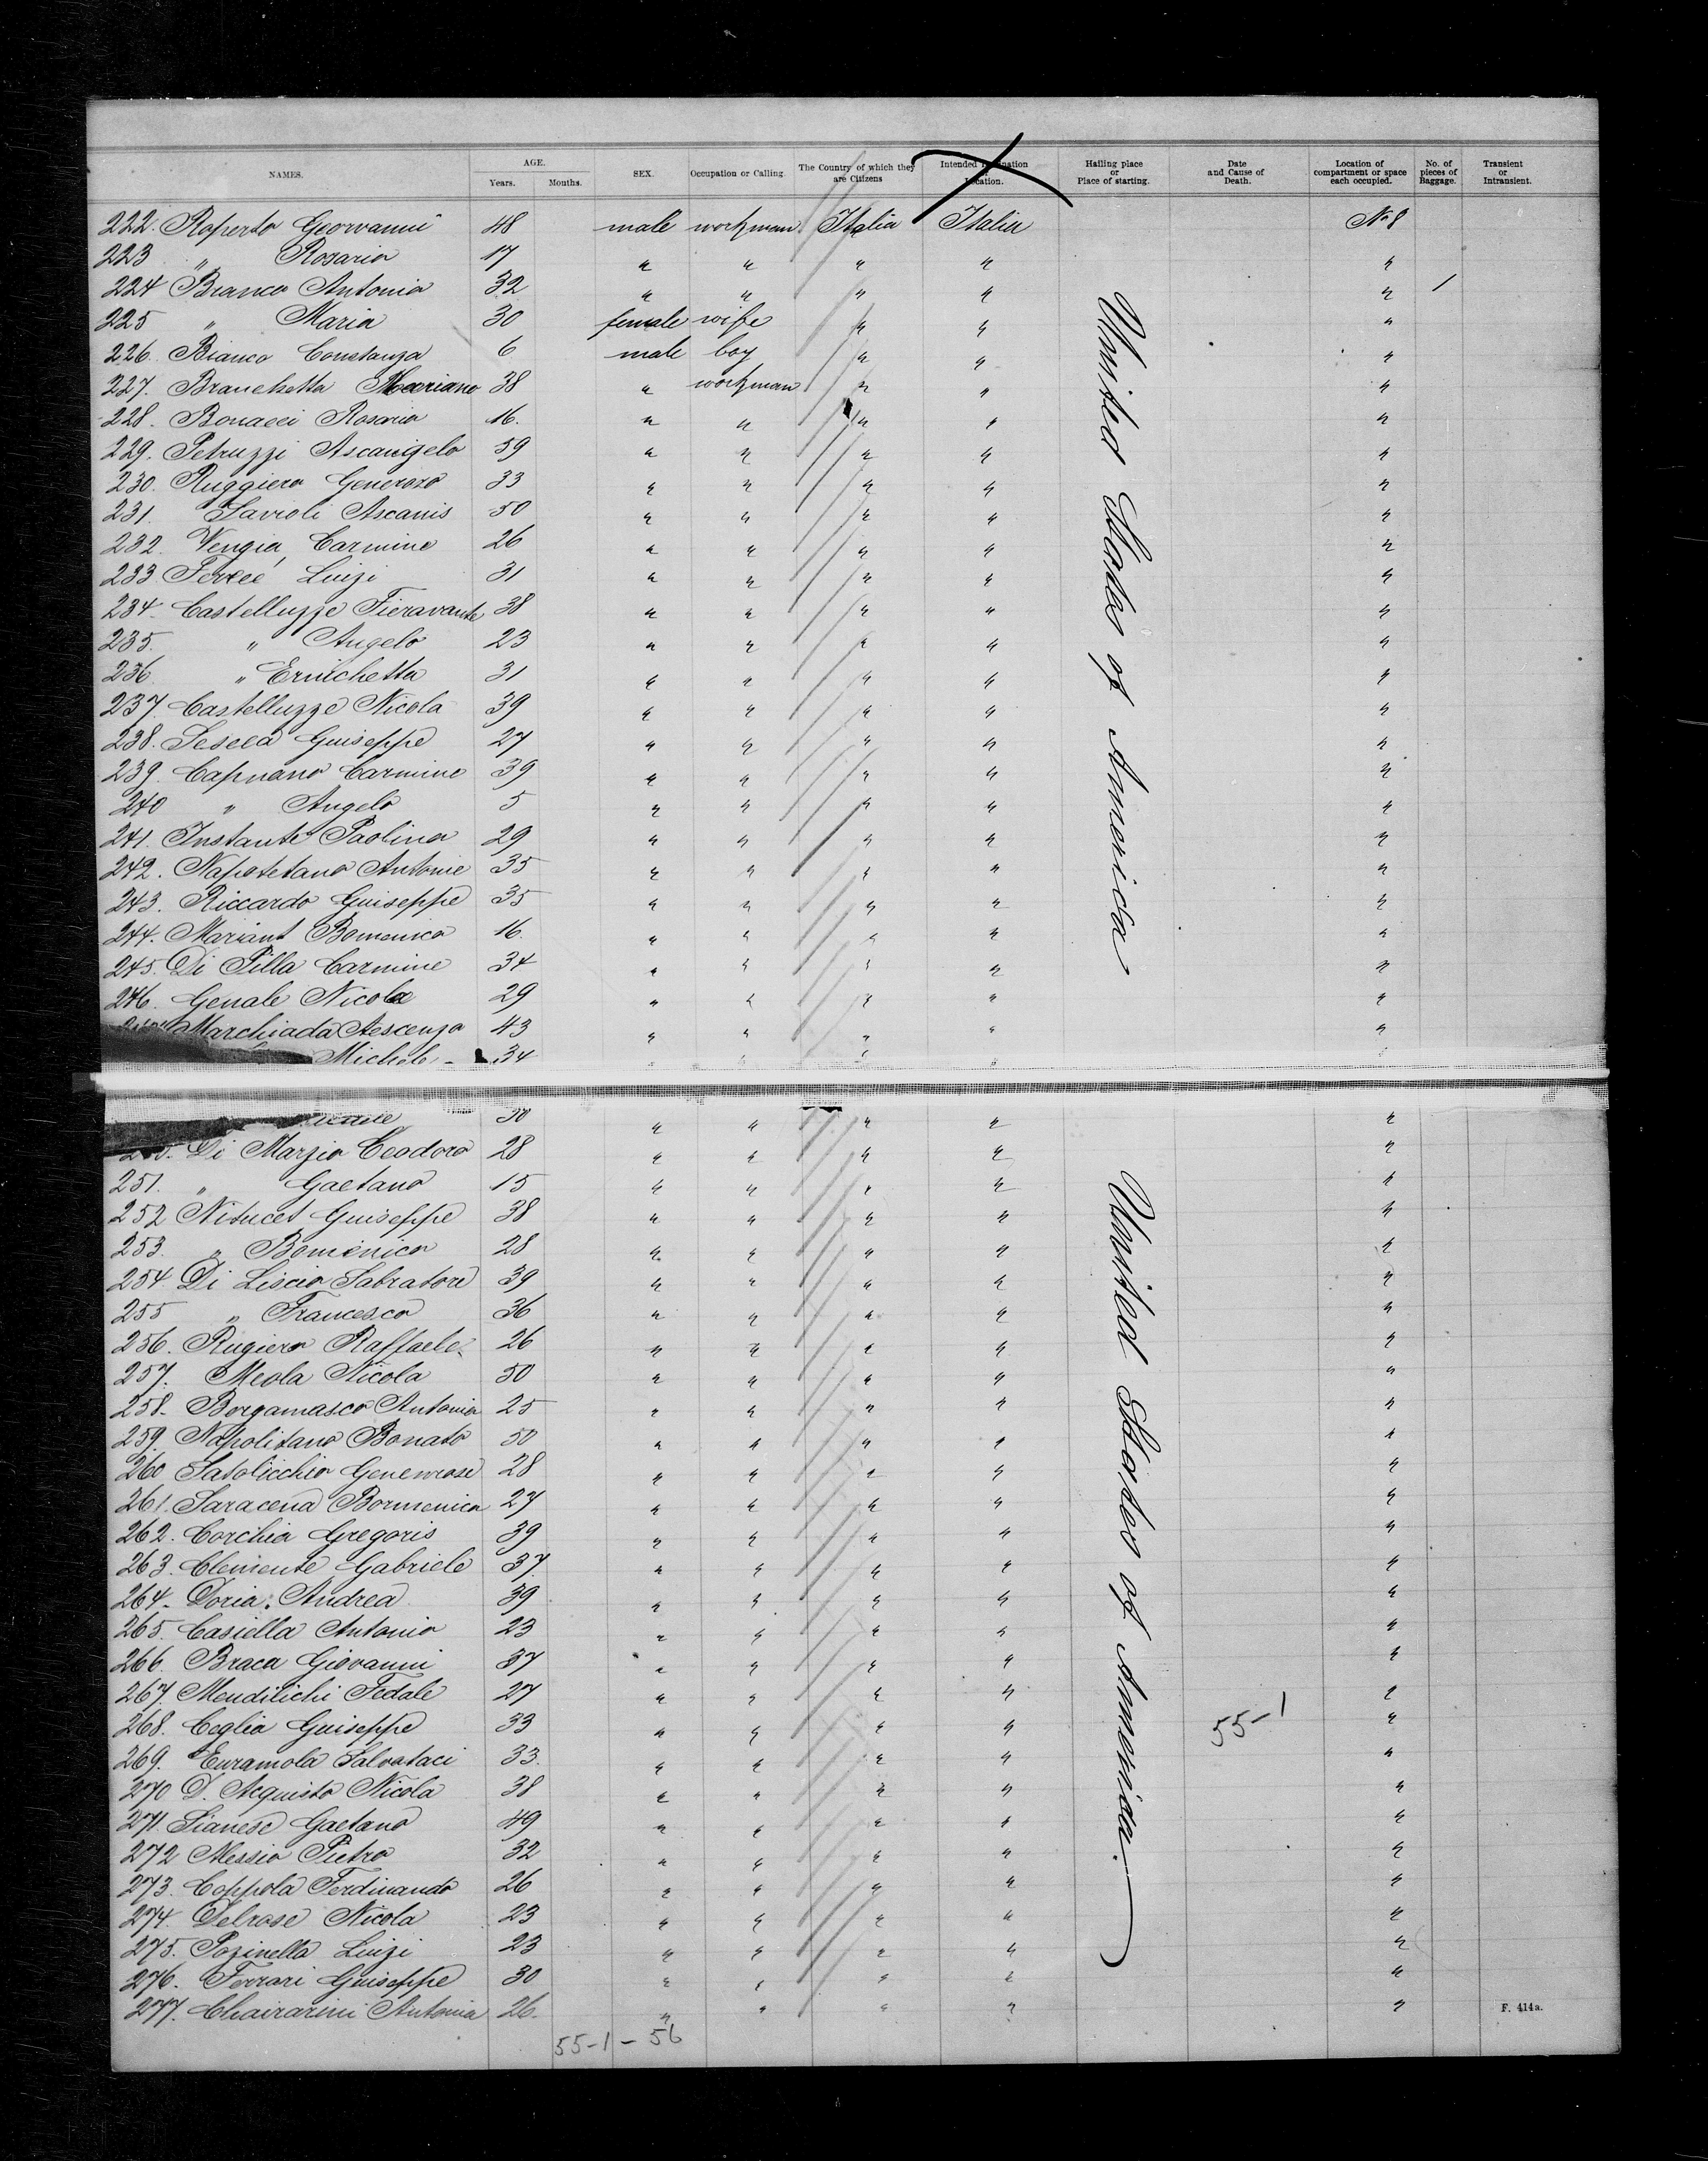 NAMES. AGE. Years. Months. SEX. Occupation or Calling. The Country of which they are Citizens Intended Location. Hailing place or Place of starting. Date and Cause of Death. Location of compartment or space each occupied. No. of pieces of Baggage. Transient or Intransient.
222. Roperto Giorvanni 48 male workman Italia Italia No 8
223 " Rosario 17 " " " " "
224 Branco Antonio 32 " " " " " 1
225 " Maria 30 female wife " " "
226. Bianco Constanza 6 male boy " " "
227. Branchetta Mariano 38 " workman " " "
228. Bonacci Rosario 16. " " " " "
229. Petruzzi Ascangelo 59 " " " " "
230. Ruggiero Generoso 33 " " " " "
231. Savioli Ascanis 50 " " " " "
232. Vengia Carmine 26 " " " " "
233. Luizi 31 " " " " "
234. Castelluzze Fieravante 38 " " " " "
235. " Angelo 23 " " " " "
236. " Ernichetta 31 " " " " "
237. Castelluzze Nicola 39 " " " " "
238. Guiseppe 27 " " " " "
239. Capuano Carmine 39 " " " " "
240 " Angelo 5 " " " " "
241. Instante Paolino 29 " " " " "
242. Napotetano Antonie 35 " " " " "
243. Riccardo Guiseppe 35 " " " " "
244. Mariant Bomenico 16. " " " " "
245. Di Pilla Carmine 34 " " " " "
246. Genale Nicola 29 " " " " "
Marchiada Aescenzo 43 " " " " "
Michele 34 " " " " "
United States of America
30 " " " " "
Di Marzio Teodoro 28 " " " " "
251. " Gaetano 15 " " " " "
252 Nitucet Guiseppe 38 " " " " "
253. " Bomenico 28 " " " " "
254 Di Liscio Salvatore 39 " " " " "
255 " Francesco 36 " " " " "
256. Rugiero Raffaele 26 " " " " "
257. Meola Nicola 50 " " " " "
258. Borgamasco Antonio 25 " " " " "
259. Napolitano Bonato 50 " " " " "
260 Satolicchio Generrose 28 " " " " "
261. Saraceno Bormenico 27 " " " " "
262. Corchia Gregoris 39 " " " " "
263. Clemente Gabriele 37. " " " " "
264. Doria. Andrea 39 " " " " "
265. Casiella Antonio 23 " " " " "
266. Braca Giovanni 37 " " " " "
267. Mendilichi Fedale 27 " " " " "
268. Ceglia Guiseppe 33 " " " " "
55-1
269. Euramola Salvataci 33. " " " " "
270 D. Acquisto Nicola 38 " " " " "
271. Sianese Gaetano 49 " " " " "
272 Messio Pietro 32 " " " " "
273. Coppola Ferdinando 26 " " " " "
274. Delrose Nicola 23 " " " " "
275. Pozinella Luizi 23 " " " " "
276. Ferrari Guiseppe 30 " " " " "
277. Chairarini Antonio 26. " " " " "
United States of America.
F. 414a.
55-1-56